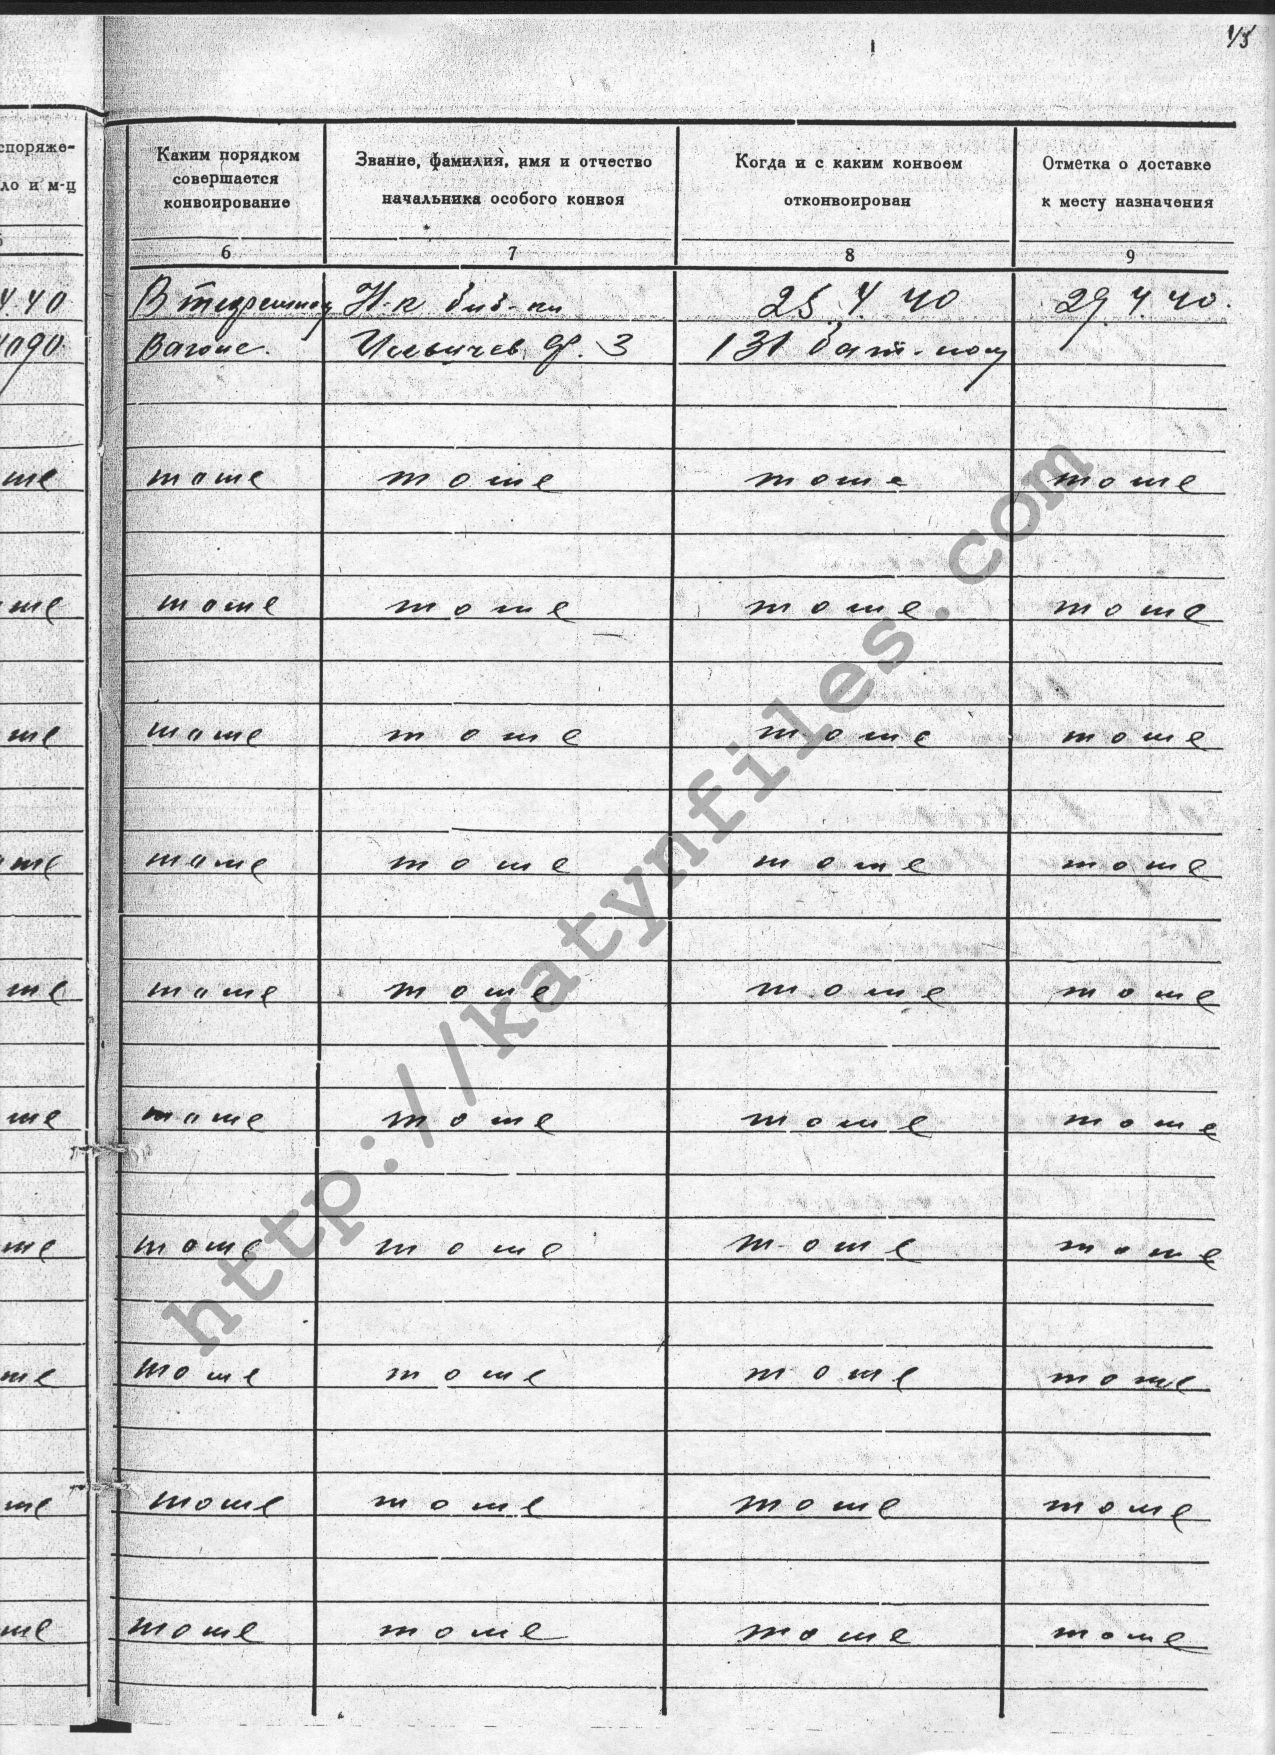 15
споряже-
ло и м-ц
Каким порядком
совершается
конвоирование
Звание, фамилия, имя и отчество
начальника особого конвоя
Когда и с каким конвоем
отконвоирован
Отметка о доставке
к месту назначения
6 7 8 9
4.40 В тюремном Н-к 25.4.40 29.4.40.
вагоне. Ильичев Ф. З 131 бат-ном
ше тоше тоше тоше тоше
ше тоше тоше тоше тоше
ше тоше тоше тоше тоше
ше тоше тоше тоше тоше
ше тоше тоше тоше тоше
ше тоше тоше тоше тоше
ше тоше тоше тоше тоше
ше тоше тоше тоше тоше
ше тоше тоше тоше тоше
ше тоше тоше тоше тоше
http://katynfiles.com